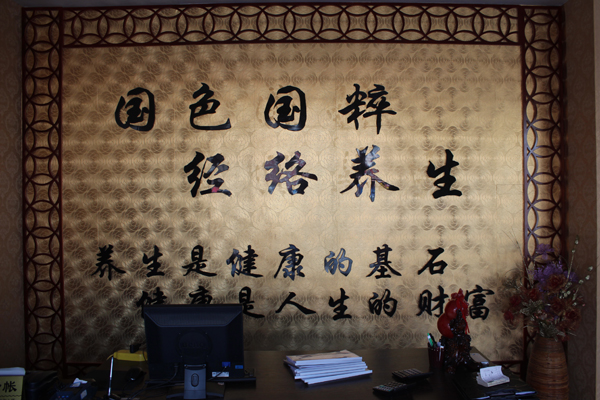 国色国粹
经络养生
养生是健康的基石
健康是人生的财富
帐